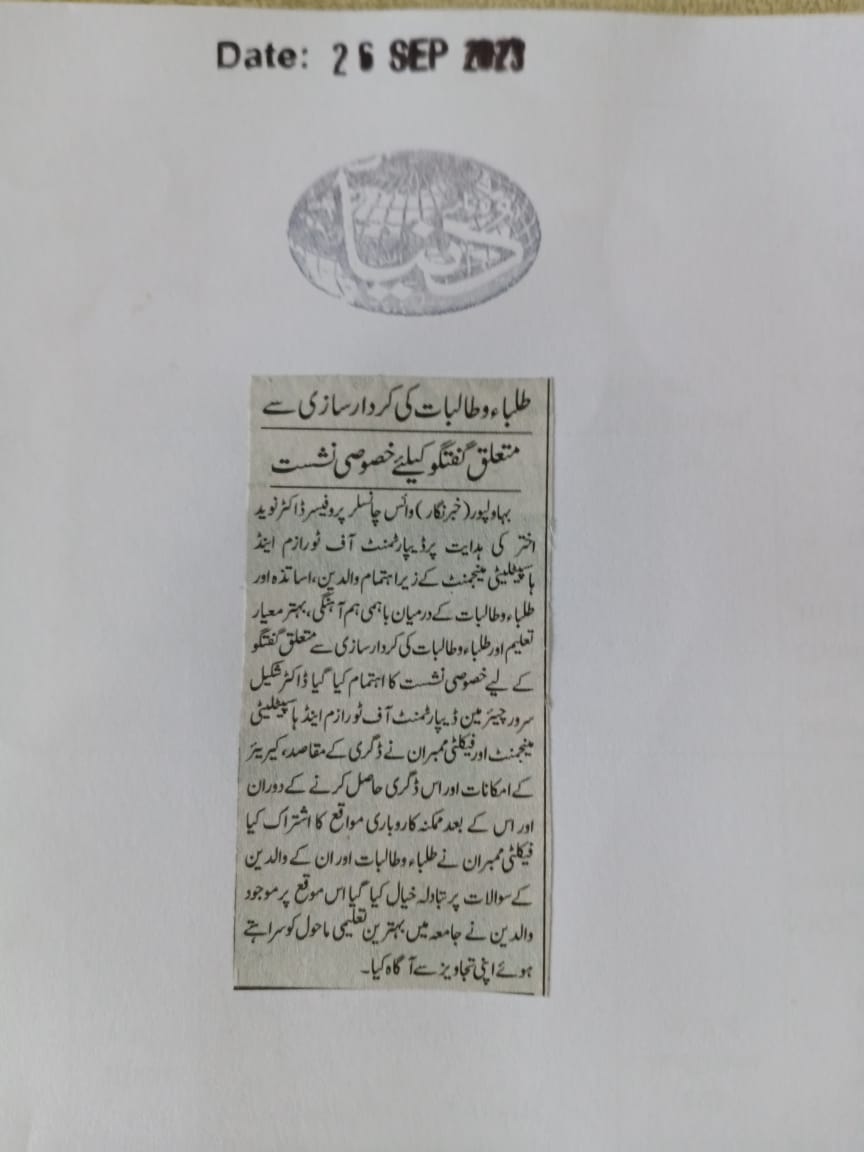 Date: 26 SEP 2023
دنیا
طلباء و طالبات کی کردار سازی سے
متعلق گفتگو کیلئے خصوصی نشست
بہاولپور (خبرنگار) وائس چانسلر پروفیسر ڈاکٹر نوید
اختر کی ہدایت پر ڈیپارٹمنٹ آف ٹورازم اینڈ
ہاسپٹلیٹی مینجمنٹ کے زیر اہتمام والدین، اساتذہ اور
طلباء و طالبات کے درمیان باہمی ہم آہنگی، بہتر معیار
تعلیم اور طلباء و طالبات کی کردار سازی سے متعلق گفتگو
کے لیے خصوصی نشست کا اہتمام کیا گیا ڈاکٹر شکیل
سرور چیئر مین ڈیپارٹمنٹ آف ٹورازم اینڈ ہاسپٹلیٹی
مینجمنٹ اور فیکلٹی ممبران نے ڈگری کے مقاصد، کیریئر
کے امکانات اور اس ڈگری حاصل کرنے کے دوران
اور اس کے بعد ممکنہ کاروباری مواقع کا اشتراک کیا
فیکلٹی ممبران نے طلباء و طالبات اور ان کے والدین
کے سوالات پر تبادلہ خیال کیا گیا اس موقع پر موجود
والدین نے جامعہ میں بہترین تعلیمی ماحول کو سراہتے
ہوئے اپنی تجاویز سے آگاہ کیا۔